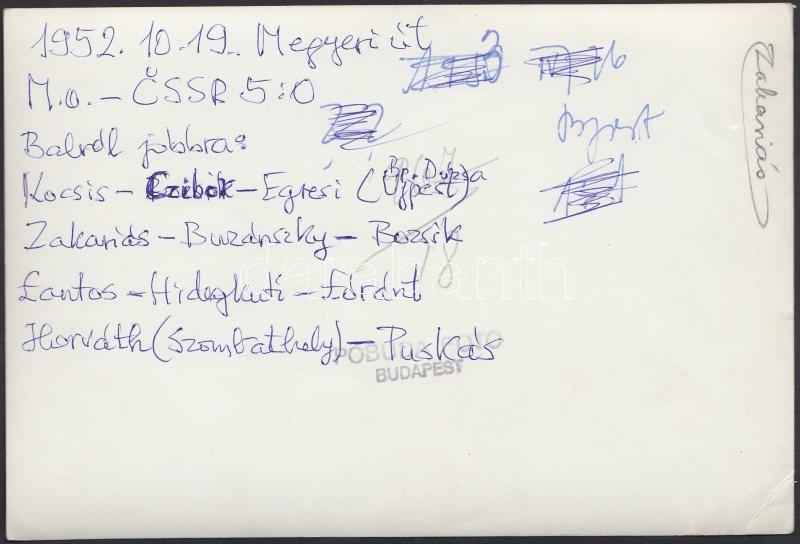 1952. 10. 19. Megyeri út
M.o. – ČSSR 5:0
Balról jobbra:
Kocsis – Czibor – Egresi (Bp. Dózsa Újpest)
Zakariás – Buzánszky – Bozsik
Lantos – Hidegkuti – Lóránt
Horváth (Szombathely) – Puskás
POBUDA FOTO
BUDAPEST
Zakariás
darabanth